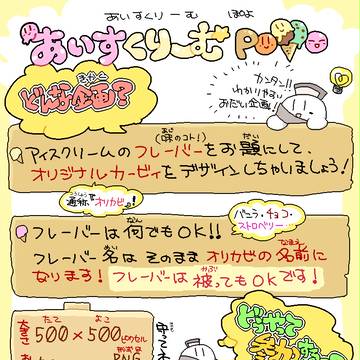 あいすくりーむ ぽぷよ
あいすくりーむ POP
どんな企画?
きかく
カンタン!!
わかりやすい
お題企画!
(味のコト!)
アイスクリームのフレーバーをお題にして、
オリジナルカービィをデザインしちゃいましょう!
通称
オリカビ。!
フレーバーは何でもOK!!
バニラ・チョコ・
ストロベリー…
フレーバー名はそのままオリカビの名前に
なります! フレーバーは被ってもOKです!
大きさ
たて よこ
500×500ピクセル
どうやって